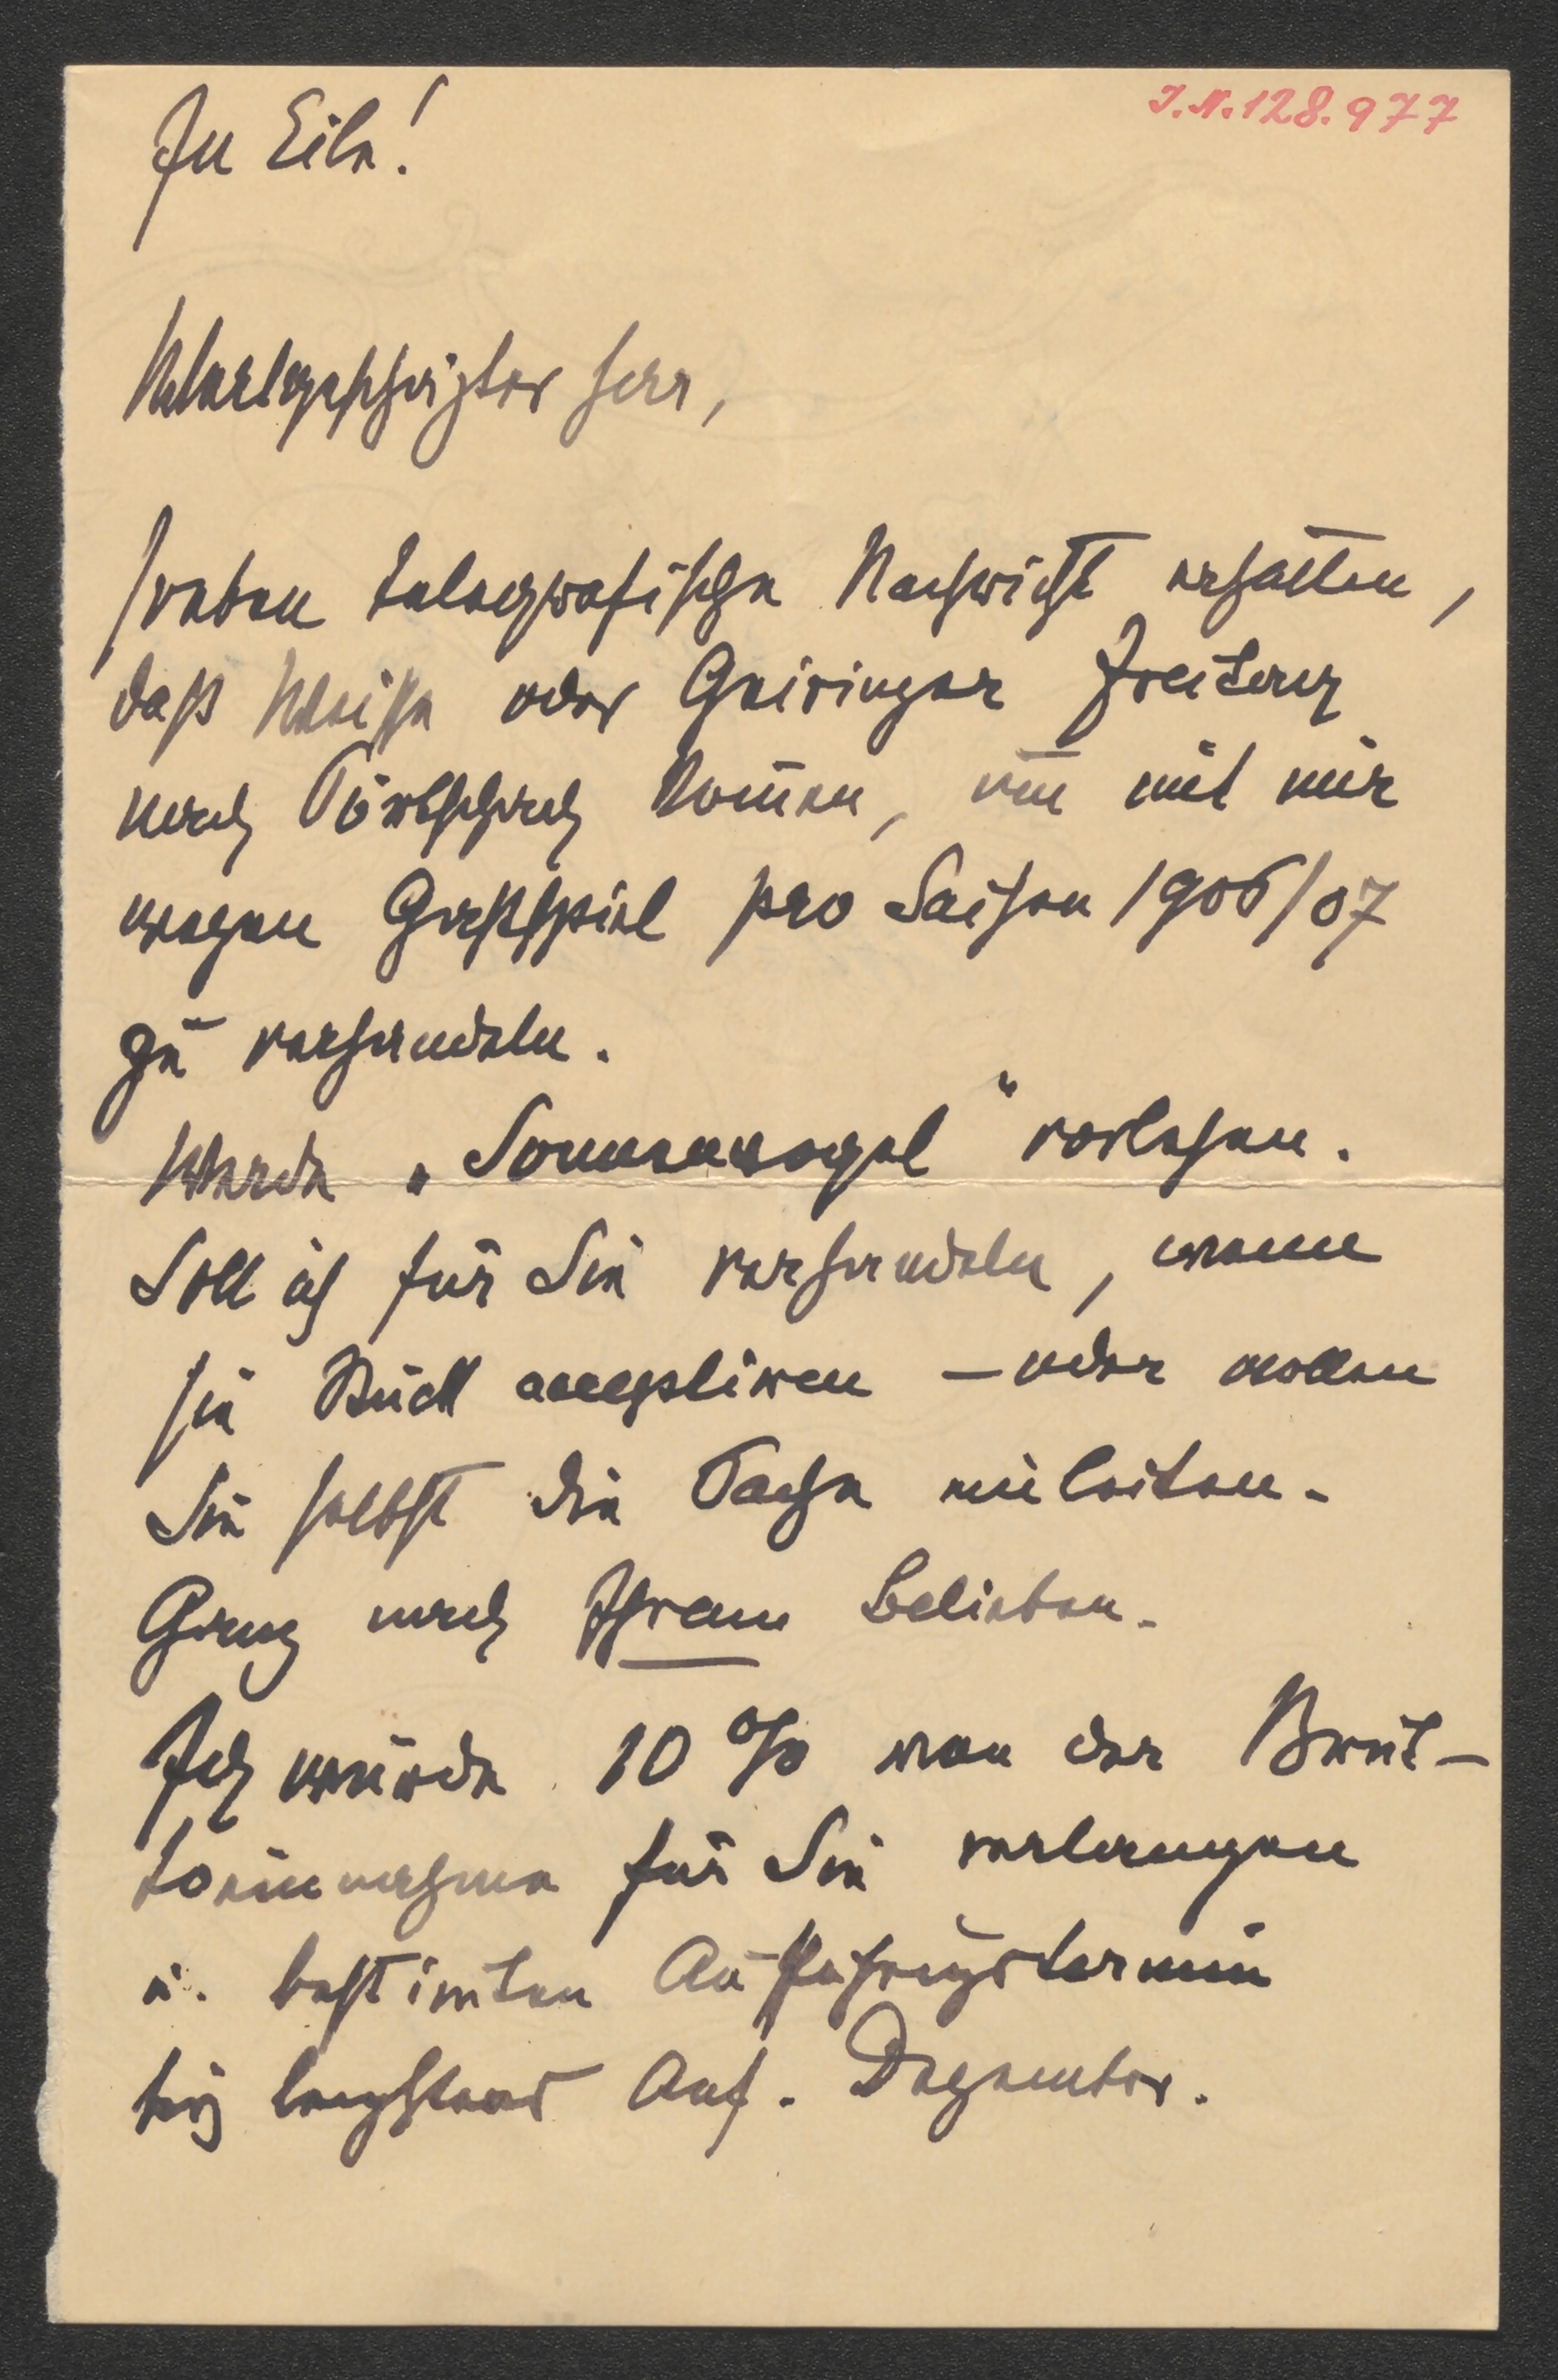 J.N. 128.977
In Eile!
Wertgeschätzter Herr,
soeben telegrafische Nachricht erhalten,
daß Weiße oder Geiringer Freitag
nach Pörtschach kom̄en, um mit mir
wegen Gastspiel pro Saison 1906/07
zu verhandeln.
Werde „Sonnenvogel“ vorlesen.
Soll ich für Sie verhandeln, wenn
sie Stück acceptiren – oder wollen
Sie selbst die Sache einleiten.
Ganz nach Ihrem Belieben.
Ich würde 10 % von der Brut-
toeinnahme für Sie verlangen
u. bestim̄ten Auffürungstermin
bis längstens Anf. Dezember.